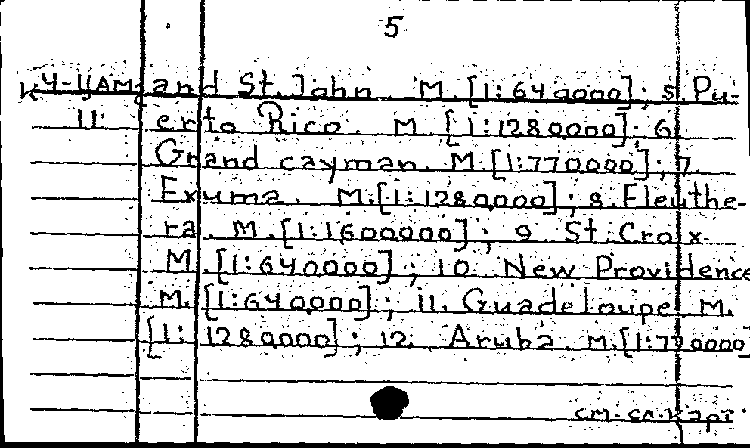 5
K4-11AM and St. John. M. [1:640000]; 5. Pu-
11 erto Rico. M. [1:1280000]; 6.
Grand cayman. M. [1:770000]; 7.
Exuma. M. [1:1280000]; 8. Eleuthe-
ra. M. [1:1600000]; 9. St. Croix.
M. [1:640000]; 10. New Providence
M. [1:640000]; 11. Guadeloupe. M.
[1:1280000]; 12. Aruba. M. [1:770000]